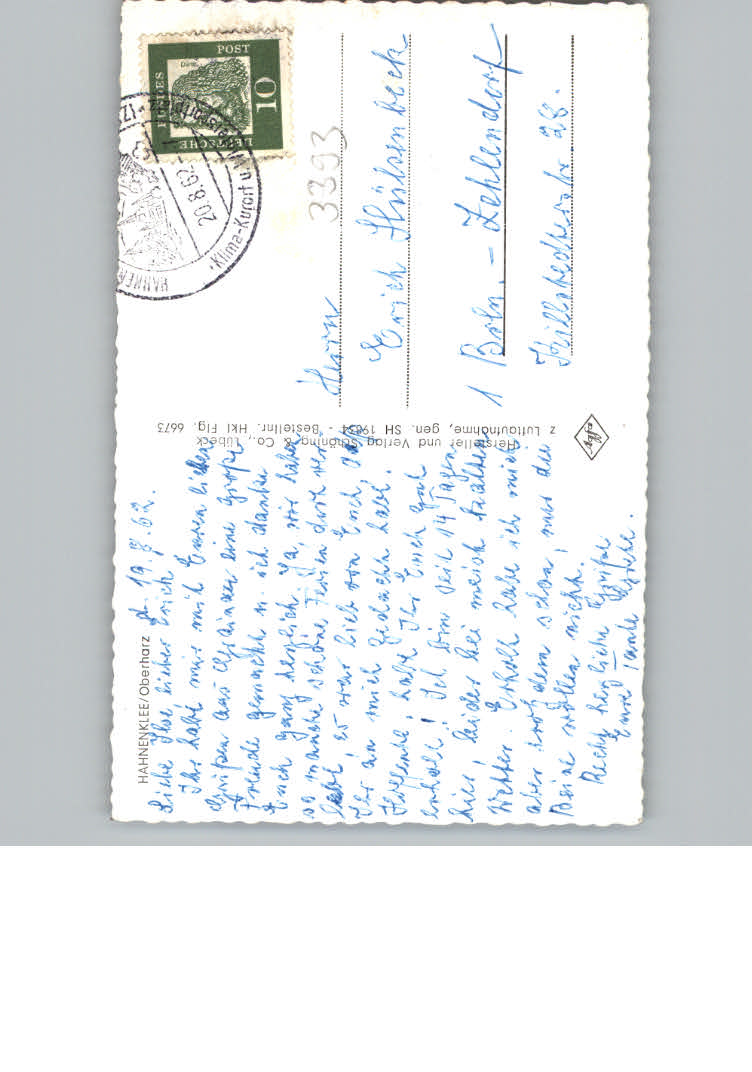 HAHNENKLEE/Oberharz
d. 19.8.62.
Liebe Ilse lieber Erich!
Ihr habt mir mit Euren lieben
Grüßen aus Grainau eine große
Freude gemacht u. ich danke
Euch ganz herzlich. Ja, wir haben
so manche schöne Ferien dort ver-
lebt, es war lieb von Euch, daß
Ihr an mich gedacht habt.
Hoffentl. habt Ihr Euch gut
erholt! Ich bin seit 14 Tagen
hier, leider bei meist kaltem
Wetter. Erholt habe ich mich
aber trotzdem schon, nur die
Beine wollen nicht.
Recht herzliche Grüße
Eure Tante
Hersteller und Verlag Schöning & Co., Lübeck
z Luftaufnahme, gen. SH 19634 - Bestellnr. Hkl Flg. 6673
Agfa
DEUTSCHE
BUNDES
POST
10
20.8.62
Klima-Kurort u.
3393
Herrn
Erich Hülsenbeck
1 Bln. - Zehlendorf
28.